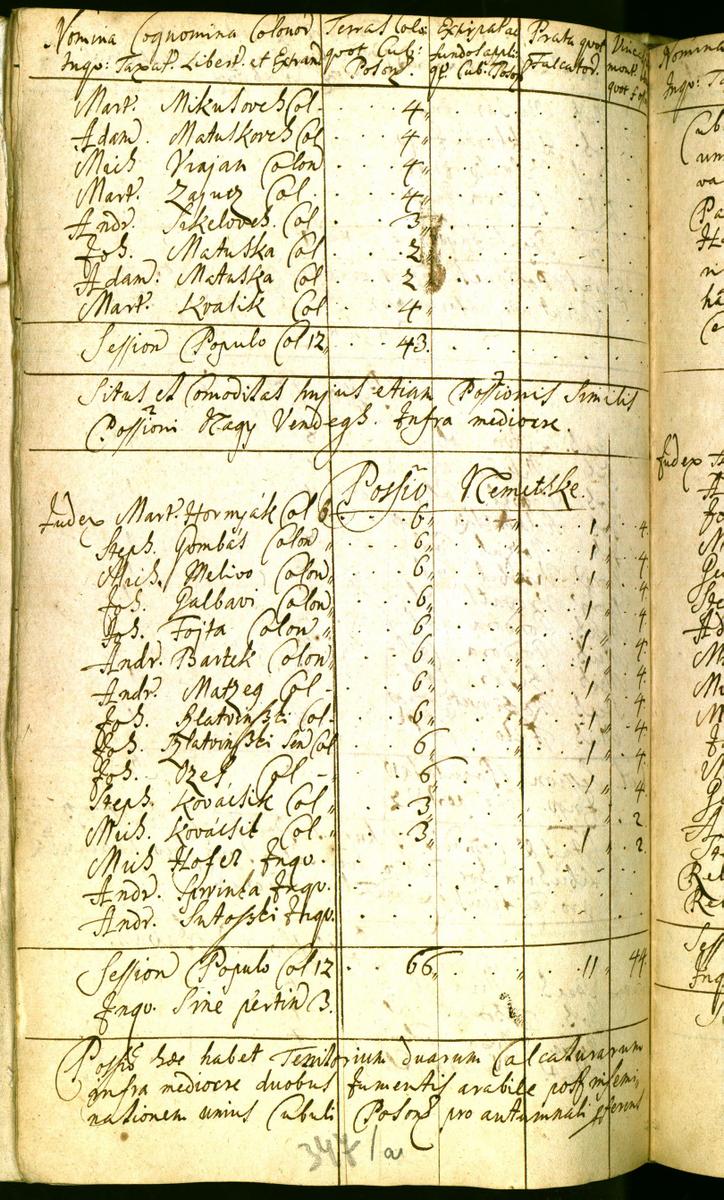 Nomina Cognomina Colonor Terras Colo: Exstirpatae Prata quot
Inqu: Taxat. Libert. et Extran quot Cub: fundos Falcator. mont. quot
Poson. qt. Cub. Poson
Mart. Mikulovch Col. 4
Adam Matuskovch Col 4
Mich Vrajan Colon 4
Mart. Zajucz Col. 4
Andr. Sekelovch. Col 3
Joh. Matuska Col 2
Adam. Matuska Col 2
Mart. Kvalik Col 4
Session Populo Col 12 43.
Situs et Comoditas hujus etiam Possionis Similis
Possioni Nagy Vendegh. Infra mediocre.
Possio Nemetske.
Judex Mart. Hornyák Col 6 6 1 4
Steph. Gombás Colon 6 1 4
Mich. Melivo Colon 6 1 4
Joh. Galbavi Colon 6 1 4
Joh. Fojta Colon 6 1 4
Andr. Bartek Colon 6 1 4
Andr. Matzeg Col - 6 1 4
Joh. Zlatvinszki Col - 6 1 4
Joh. Zlatvinszki Sen Col 6 1 4
Joh. Col - 6 1 4
Steph. Kovácsik Col 3 2
Mich. Kovácsik Col - 3 1 2
Mich Hofer Inqu.
Andr. Inqu.
Andr. Sutoszki Inqu.
Session Populo Col 12 66 11 44
Inqu. Sine pertin 3.
Possio haec habet Territorium duarum Calcaturarum
infra mediocre duobus Jumentis arabile post insemi-
nationem unius Cubuli Poson pro autumnali ferens
347/a